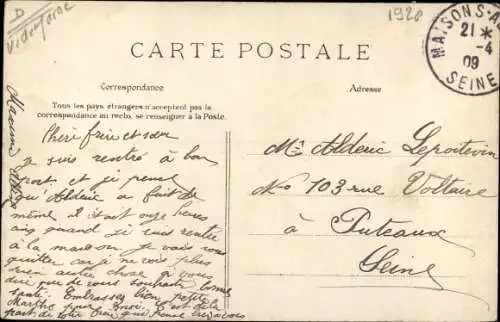 D
Victorine
1928
MAISONS-AL
21 *
-4
09
SEINE
CARTE POSTALE
Correspondance
Adresse
Tous les pays étrangers n'acceptent pas la
correspondance au recto, se renseigner à la Poste.
Chère frère et sœur
je suis rentré à bon
port et je pense
qu'Alderic a fait de
même il était onze heures
cinq quand je suis rentré
à la maison je vous
quitter car je ne vois plus
rien autre chose à vous
dire que de vous souhaiter bonne
santé. Embrasser bien petite
Marthe pour moi
part de votre frère qui pense à vous
Mr Alderic Lepoitevin
No 103 rue Voltaire
à Puteaux
Seine